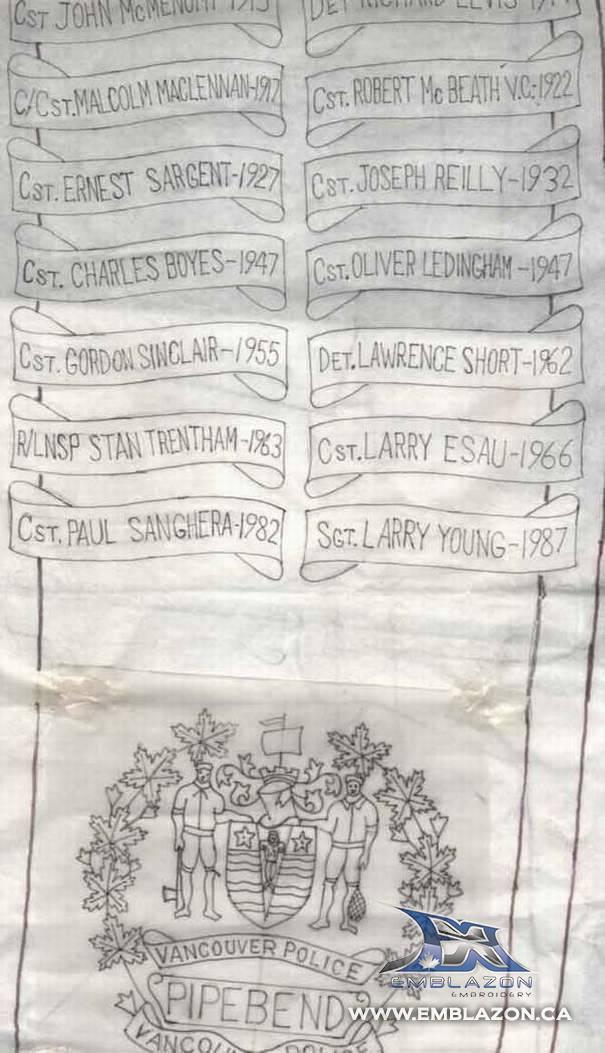 CST JOHN McMENOMY 1915
DET RICHARD LEVIS 1914
C/CST. MALCOLM MACLENNAN-1917
CST. ROBERT McBEATH V.C.-1922
CST. ERNEST SARGENT-1927
CST. JOSEPH REILLY-1932
CST. CHARLES BOYES-1947
CST. OLIVER LEDINGHAM-1947
CST. GORDON SINCLAIR-1955
DET. LAWRENCE SHORT-1962
R/LNSP STAN TRENTHAM-1963
CST. LARRY ESAU-1966
CST. PAUL SANGHERA-1982
SGT. LARRY YOUNG-1987
VANCOUVER POLICE
PIPEBEND
VANCOUVER POLICE
EMBLAZON
EMBROIDERY
WWW.EMBLAZON.CA